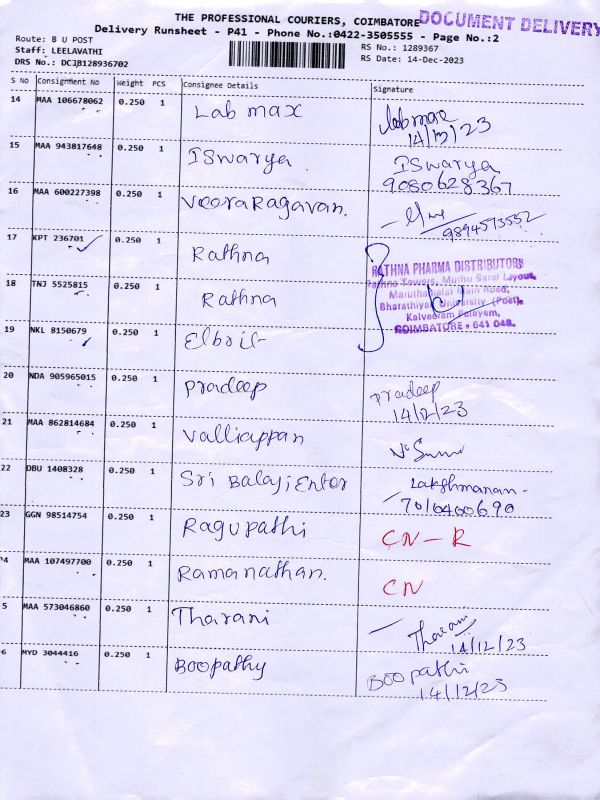 THE PROFESSIONAL COURIERS, COIMBATORE DOCUMENT DELIVERY
Delivery Runsheet - P41 - Phone No.:0422-3505555 - Page No.:2
Route: B U POST
Staff: LEELAVATHI
DRS No.: DCJB128936702
RS No.: 1289367
RS Date: 14-Dec-2023
S No Consignment No Weight PCS Consignee Details Signature
14 MAA 106678062 0.250 1 Lab max Labmax
14/12/23
15 MAA 943817648 0.250 1 ISwarya ISwarya
9080628367
16 MAA 600227398 0.250 1 VeeraRagavan.
9894573552
17 KPT 236701 0.250 1 Rathna
18 TNJ 5525815 0.250 1 Rathna
RATHNA PHARMA DISTRIBUTORS
Rathna Towers, Muthu Layout,
Maruthamalai Main Road,
Bharathiyar University (Post),
Kalveeram Palayam,
COIMBATORE - 641 046.
19 NKL 8150679 0.250 1
20 NDA 905965015 0.250 1 Pradeep Pradeep
14/12/23
21 MAA 862814684 0.250 1 Valliappan
22 DBU 1408328 0.250 1 Sri Balaji Enter Lakshmanan-
7016400690
23 GGN 98514754 0.250 1 Ragupathi CN-R
24 MAA 107497700 0.250 1 Ramanathan. CN
5 MAA 573046860 0.250 1 Tharani Tharani
14/12/23
6 MYD 3044416 0.250 1 Boopathy Boopathi
14/12/23